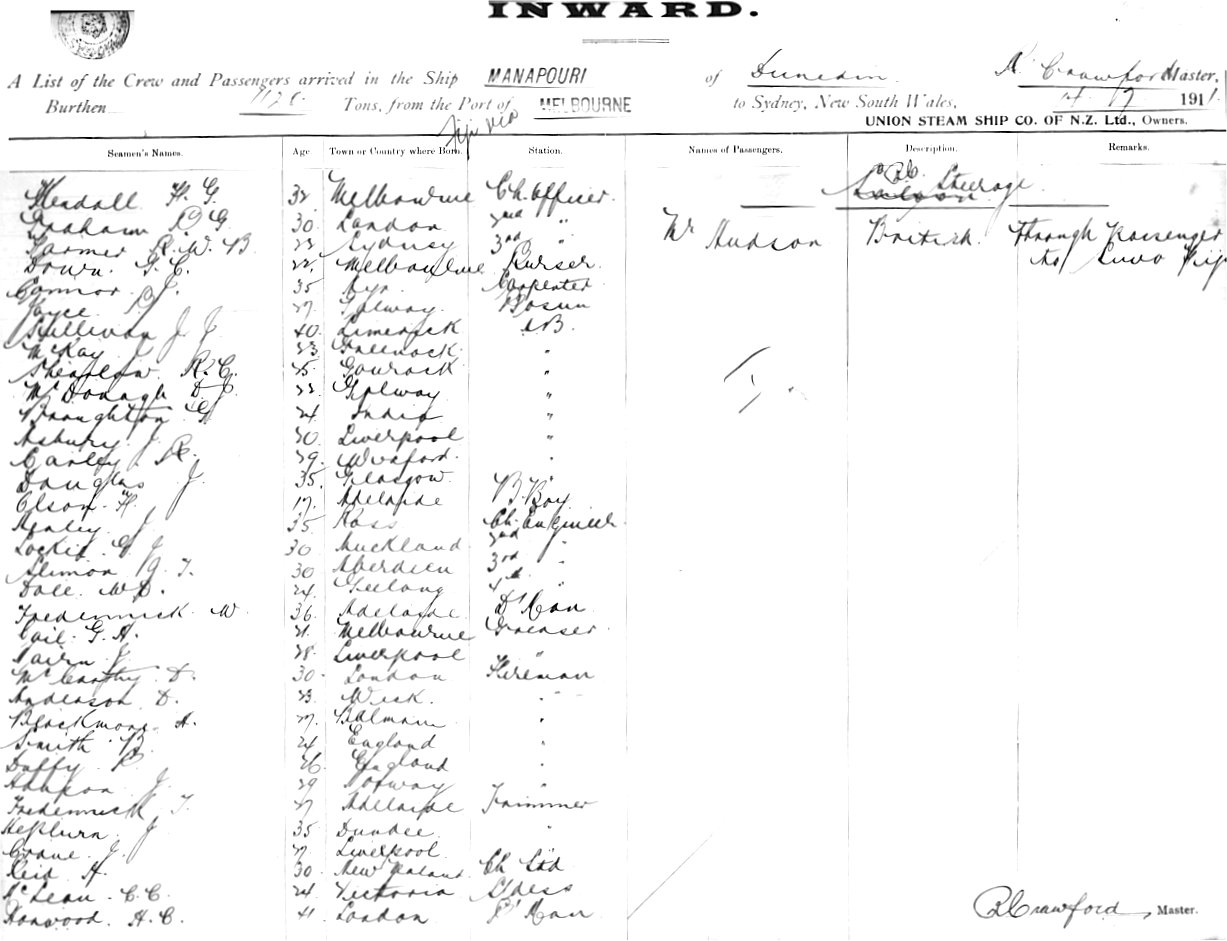 INWARD.
A List of the Crew and Passengers arrived in the Ship MANAPOURI of Dunedin Crawford Master,
Burthen Tons, from the Port of MELBOURNE to Sydney, New South Wales, 191
Fiji via
UNION STEAM SHIP CO. OF N.Z. Ltd., Owners.
Seamen's Names. Age Town or Country where Born. Station. Names of Passengers. Description. Remarks.
Steerage
Kendall H. G. 32 Melbourne Ch. Officer
Graham G 30 London 2nd "
Farmer R. W. B. 23 Sydney 3rd " Mr Hudson British Through Passenger
Down G. C. 22 Melbourne Purser to Suva Fiji
Connor J. 35 Ayr Carpenter
Joyce 27 Galway Bosun
Sullivan J J 40 Limerick AB
McKay J 23 Greenock "
R. C. Gourock "
McDonagh D J 22 Galway "
Broughton G 24 India "
Asbury J 30 Liverpool "
Carley R. 29 Wexford "
Douglas J. 35 Glasgow "
Olson H. 17 Adelaide B. Boy
Healey J 35 Ross Ch. Engineer
Lockie G J 30 Auckland 2nd "
Slimon T. 30 Aberdeen 3rd "
Dale W. D. 24 Geelong 4th "
Fredennick W. 36 Adelaide D'Man
Cail G. A. 21 Melbourne Greaser
Nairn J 28 Liverpool "
McCarthy D. 30 London Fireman
Anderson D. 23 Wick "
Blackmore A. 27 Balmain "
Smith B 24 England "
Duffy P. 26 England "
J. 29 Norway "
Fredennick T. 27 Adelaide Trimmer
Hepburn J 35 Dundee "
Crane J. 27 Liverpool
Reid A. 30 New Zealand Ch Std
McLean C. C. 24 Victoria S'dess
Norwood H. C. 41 London P'Man
Crawford, Master.